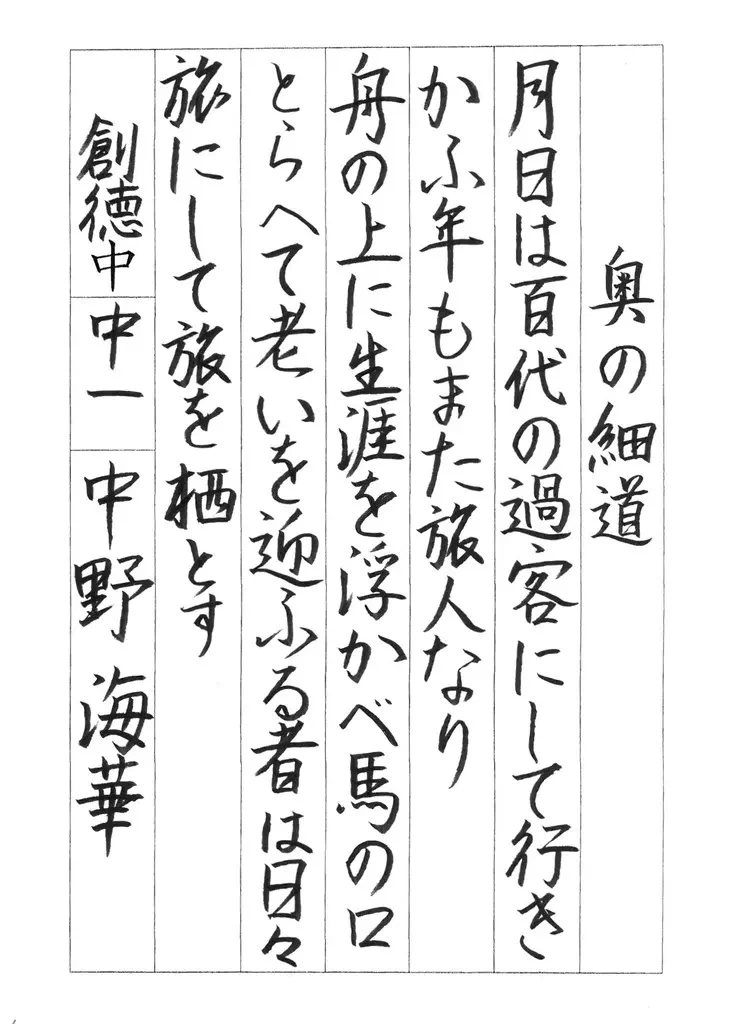 奥の細道
月日は百代の過客にして行き
かふ年もまた旅人なり
舟の上に生涯を浮かべ馬の口
とらへて老いを迎ふる者は日々
旅にして旅を栖とす
創徳中 中一 中野海華